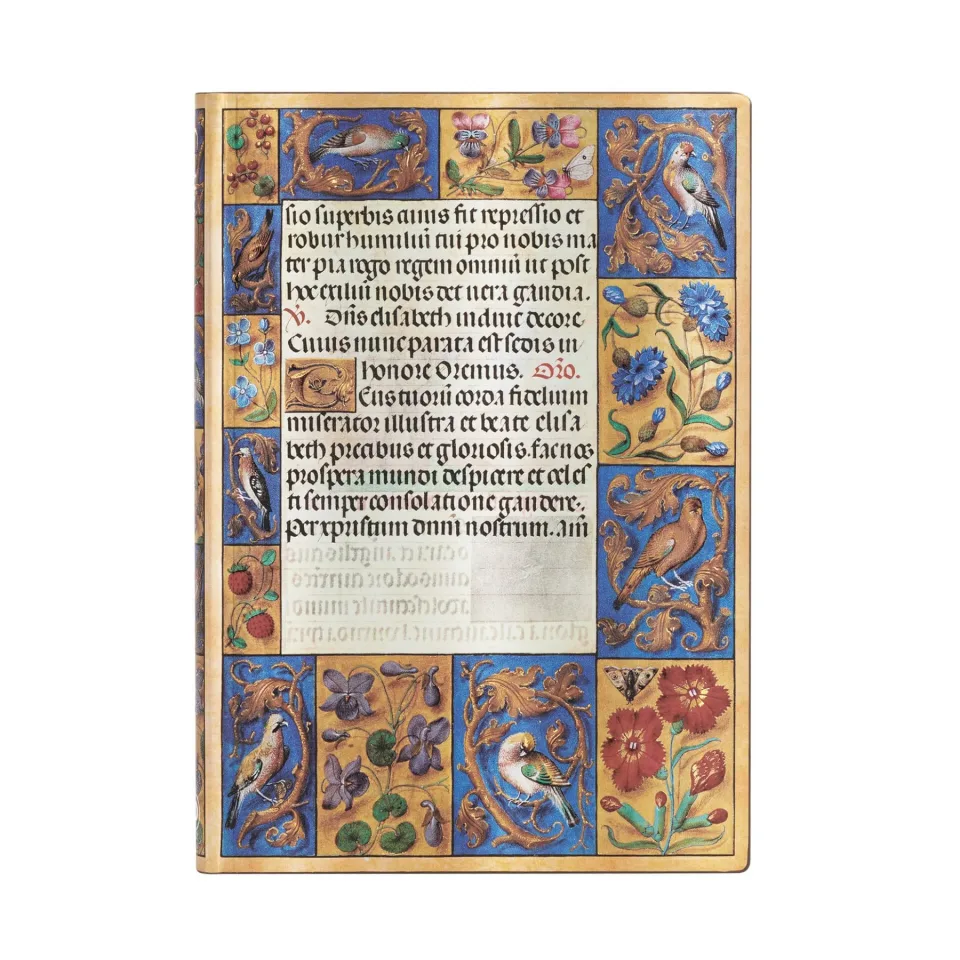 sio superbis cuius fit repressio et
robur humiliū tui pro nobis ma
ter pia rogo regem omniū ut post
hoc exiliū nobis det vera gaudia.
V. Dn̄s elisabeth induit decore
Cuius nunc parata est sedis in
honore Oremus. Orō.
Eus tuorū corda fidelium
miserator illustra et beate elisa
beth precibus et gloriosis. fac nos
prospera mundi despicere et celes
ti semper consolatione gaudere.
Per xpristum dnm̄ nostrum. am̄